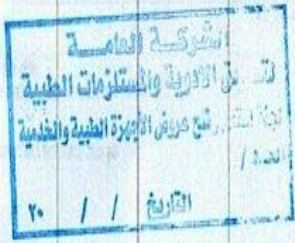 الشركة العامة
لتسويق الادوية والمستلزمات الطبية
فتح عروض الأجهزة الطبية والخدمية
العدد /
التاريخ / / ٢٠